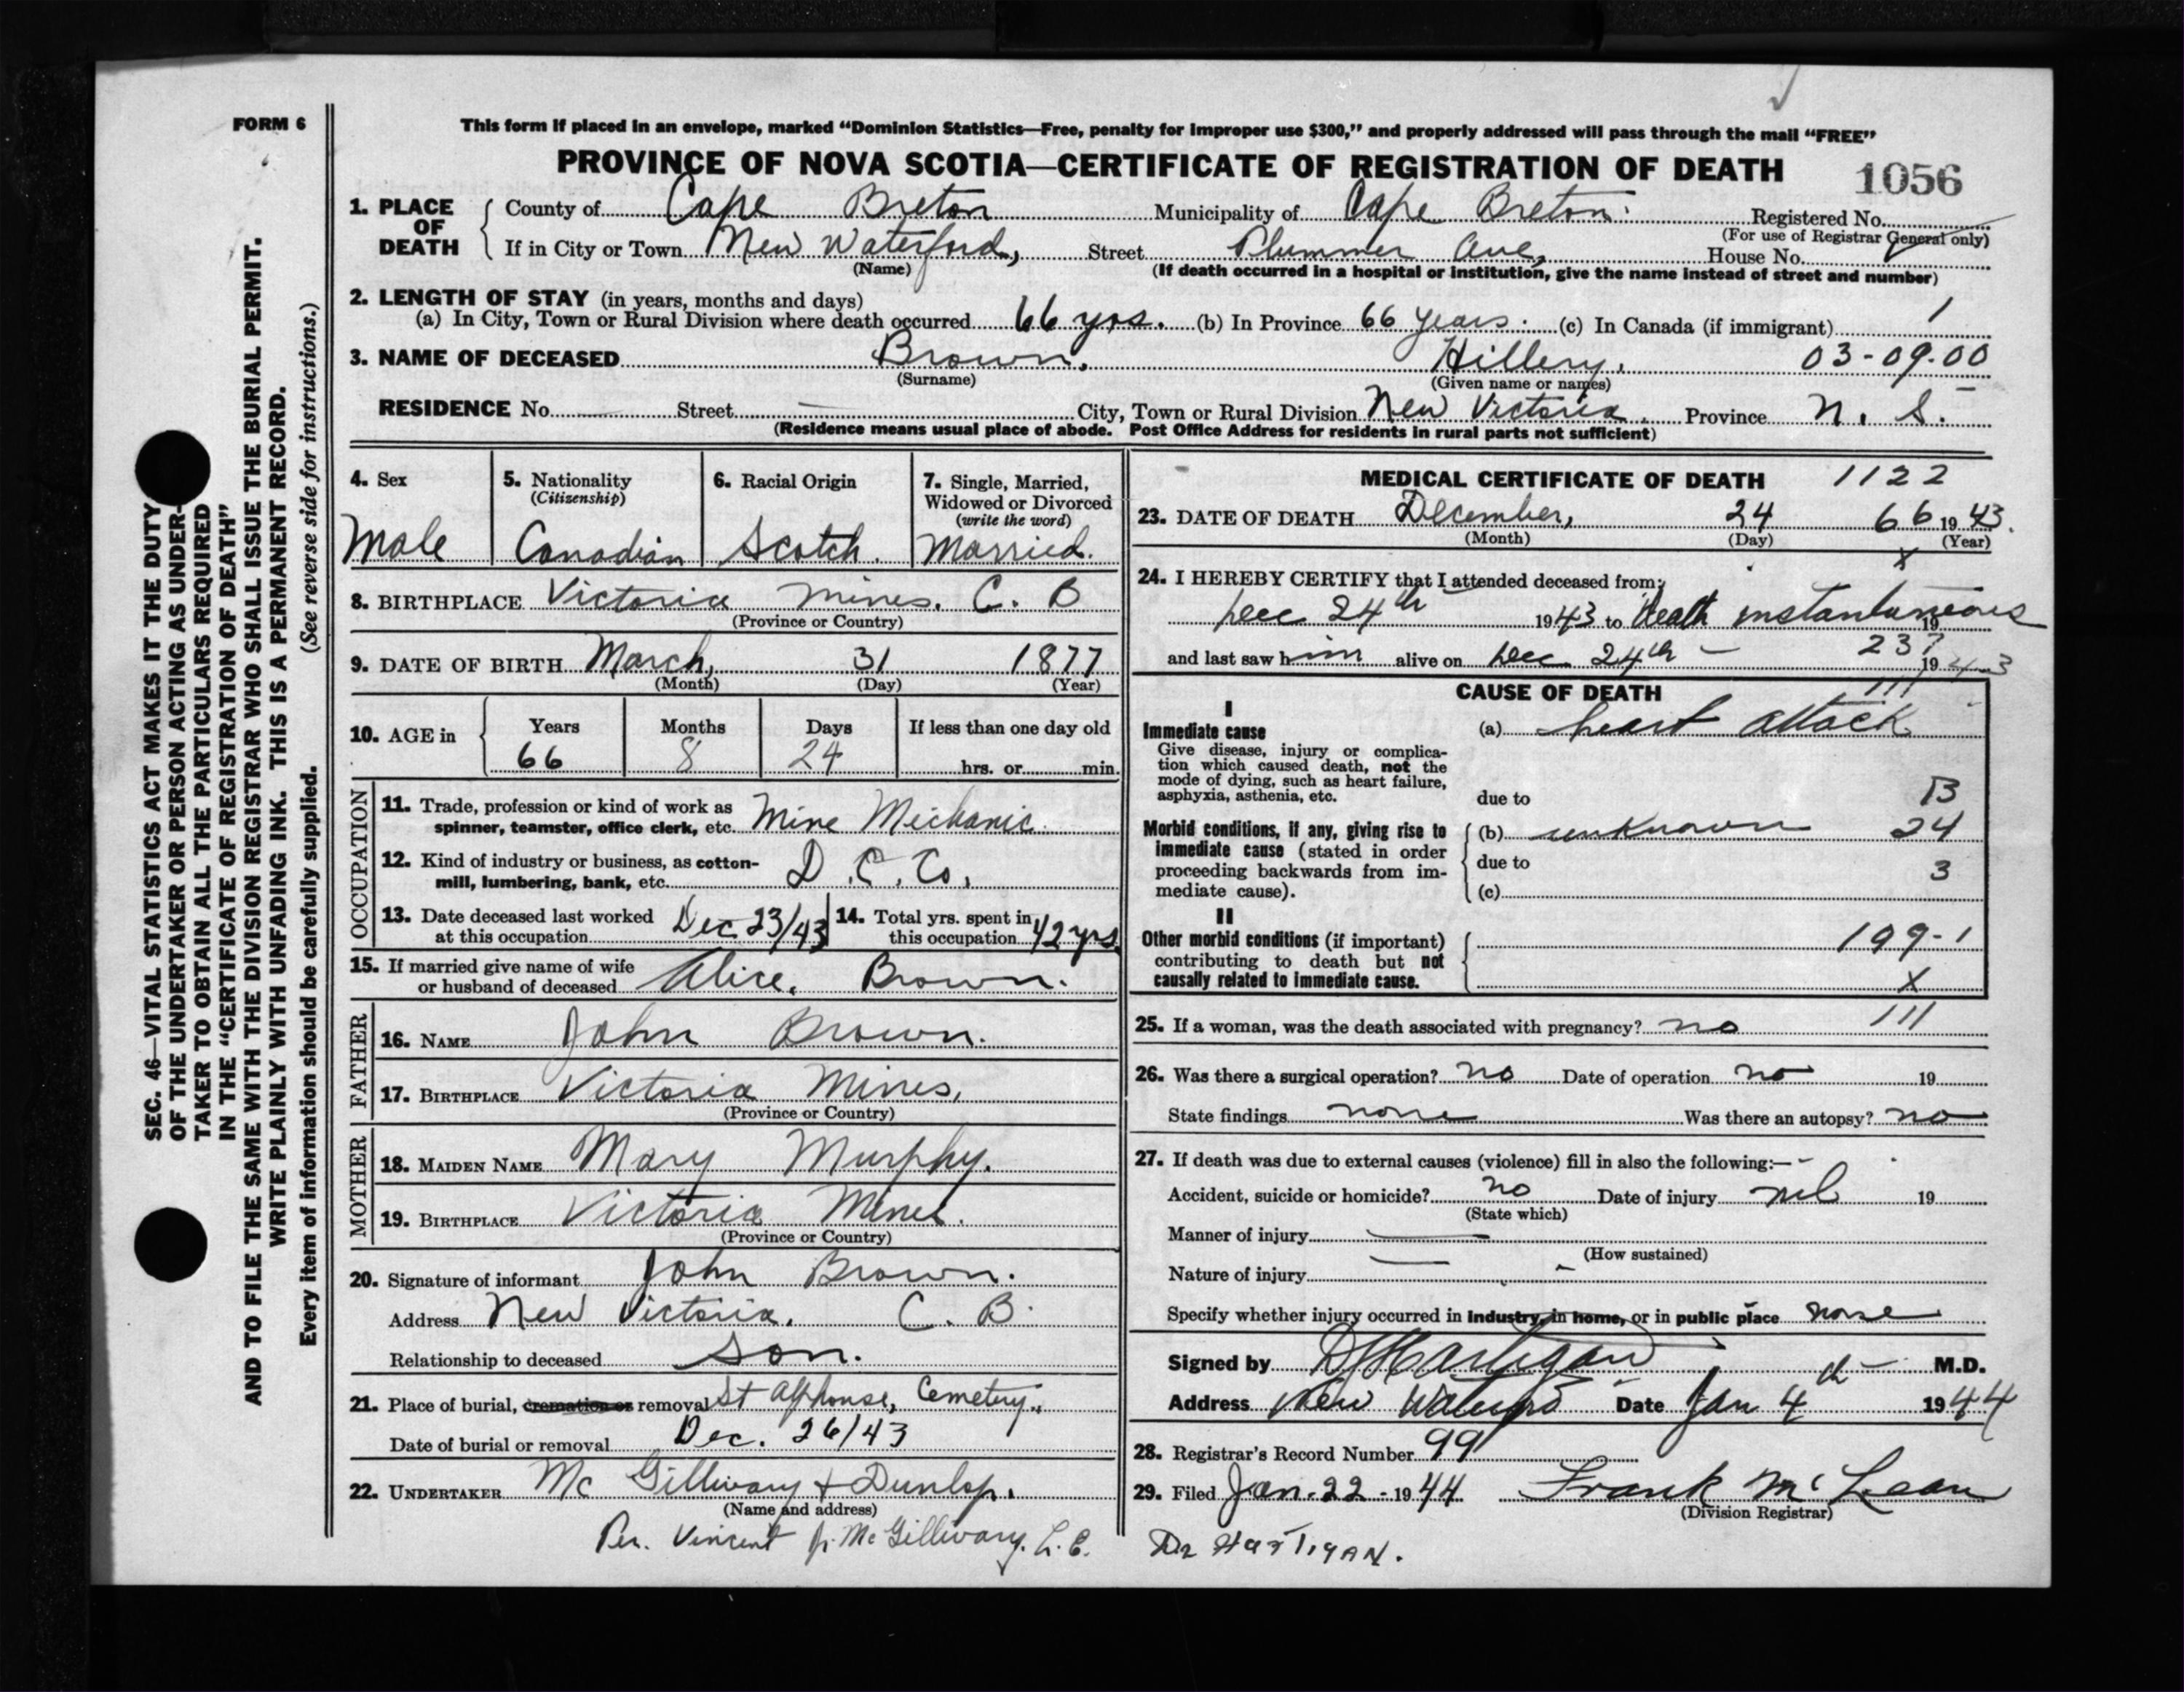 FORM 6
This form if placed in an envelope, marked “Dominion Statistics—Free, penalty for improper use $300,” and properly addressed will pass through the mail “FREE”
PROVINCE OF NOVA SCOTIA—CERTIFICATE OF REGISTRATION OF DEATH 1056
1. PLACE OF DEATH County of Cape Breton Municipality of Cape Breton Registered No.
(For use of Registrar General only)
If in City or Town New Waterford, Street Plummer Ave, House No.
(Name) (If death occurred in a hospital or institution, give the name instead of street and number)
2. LENGTH OF STAY (in years, months and days)
(a) In City, Town or Rural Division where death occurred 66 yrs. (b) In Province 66 years. (c) In Canada (if immigrant) 1
3. NAME OF DECEASED Brown, Hillery, 03-09-00
(Surname) (Given name or names)
RESIDENCE No. — Street — City, Town or Rural Division New Victoria, Province N. S.
(Residence means usual place of abode. Post Office Address for residents in rural parts not sufficient)
4. Sex Male
5. Nationality (Citizenship) Canadian
6. Racial Origin Scotch.
7. Single, Married, Widowed or Divorced (write the word) Married.
8. BIRTHPLACE Victoria Mines. C. B
(Province or Country)
9. DATE OF BIRTH March, 31 1877
(Month) (Day) (Year)
10. AGE in Years Months Days If less than one day old
66 8 24 hrs. or min.
OCCUPATION
11. Trade, profession or kind of work as spinner, teamster, office clerk, etc. Mine Michanic
12. Kind of industry or business, as cotton-mill, lumbering, bank, etc. D.C.Co,
13. Date deceased last worked at this occupation Dec 23/43
14. Total yrs. spent in this occupation 42 yrs
15. If married give name of wife or husband of deceased Alice, Brown.
FATHER
16. NAME John Brown.
17. BIRTHPLACE Victoria Mines,
(Province or Country)
MOTHER
18. MAIDEN NAME Mary Murphy.
19. BIRTHPLACE Victoria Mines.
(Province or Country)
20. Signature of informant John Brown.
Address New Victoria, C. B.
Relationship to deceased Son.
21. Place of burial, cremation or removal St Alphonse, Cemetery.
Date of burial or removal Dec. 26/43
22. UNDERTAKER Mc Gillivary + Dunlop.
(Name and address)
Per. Vincent J. McGillivary. L. E.
MEDICAL CERTIFICATE OF DEATH 1122
23. DATE OF DEATH December, 24 66 1943.
(Month) (Day) (Year)
x
24. I HEREBY CERTIFY that I attended deceased from:
Dec 24th 1943 to death instantaneous 19
and last saw him alive on Dec 24th — 237 1943
CAUSE OF DEATH 111
I
Immediate cause (a) heart attack
Give disease, injury or complication which caused death, not the mode of dying, such as heart failure, asphyxia, asthenia, etc.
due to B
Morbid conditions, if any, giving rise to immediate cause (stated in order proceeding backwards from immediate cause).
(b) unknown 24
due to 3
(c)
II
Other morbid conditions (if important) contributing to death but not causally related to immediate cause.
199-1
X
25. If a woman, was the death associated with pregnancy? no 111
26. Was there a surgical operation? no Date of operation no 19
State findings none Was there an autopsy? no
27. If death was due to external causes (violence) fill in also the following:—
Accident, suicide or homicide? no Date of injury nil 19
(State which)
Manner of injury —
(How sustained)
Nature of injury
Specify whether injury occurred in industry, in home, or in public place none
Signed by DJ Hartigan M.D.
Address New Waterford Date Jan 4th 1944
28. Registrar's Record Number 99
29. Filed Jan. 22 - 1944 Frank McLean
(Division Registrar)
Dr HarTigAN.
SEC. 46—VITAL STATISTICS ACT MAKES IT THE DUTY
OF THE UNDERTAKER OR PERSON ACTING AS UNDER-
TAKER TO OBTAIN ALL THE PARTICULARS REQUIRED
IN THE “CERTIFICATE OF REGISTRATION OF DEATH”
AND TO FILE THE SAME WITH THE DIVISION REGISTRAR WHO SHALL ISSUE THE BURIAL PERMIT.
WRITE PLAINLY WITH UNFADING INK. THIS IS A PERMANENT RECORD.
Every item of information should be carefully supplied. (See reverse side for instructions.)